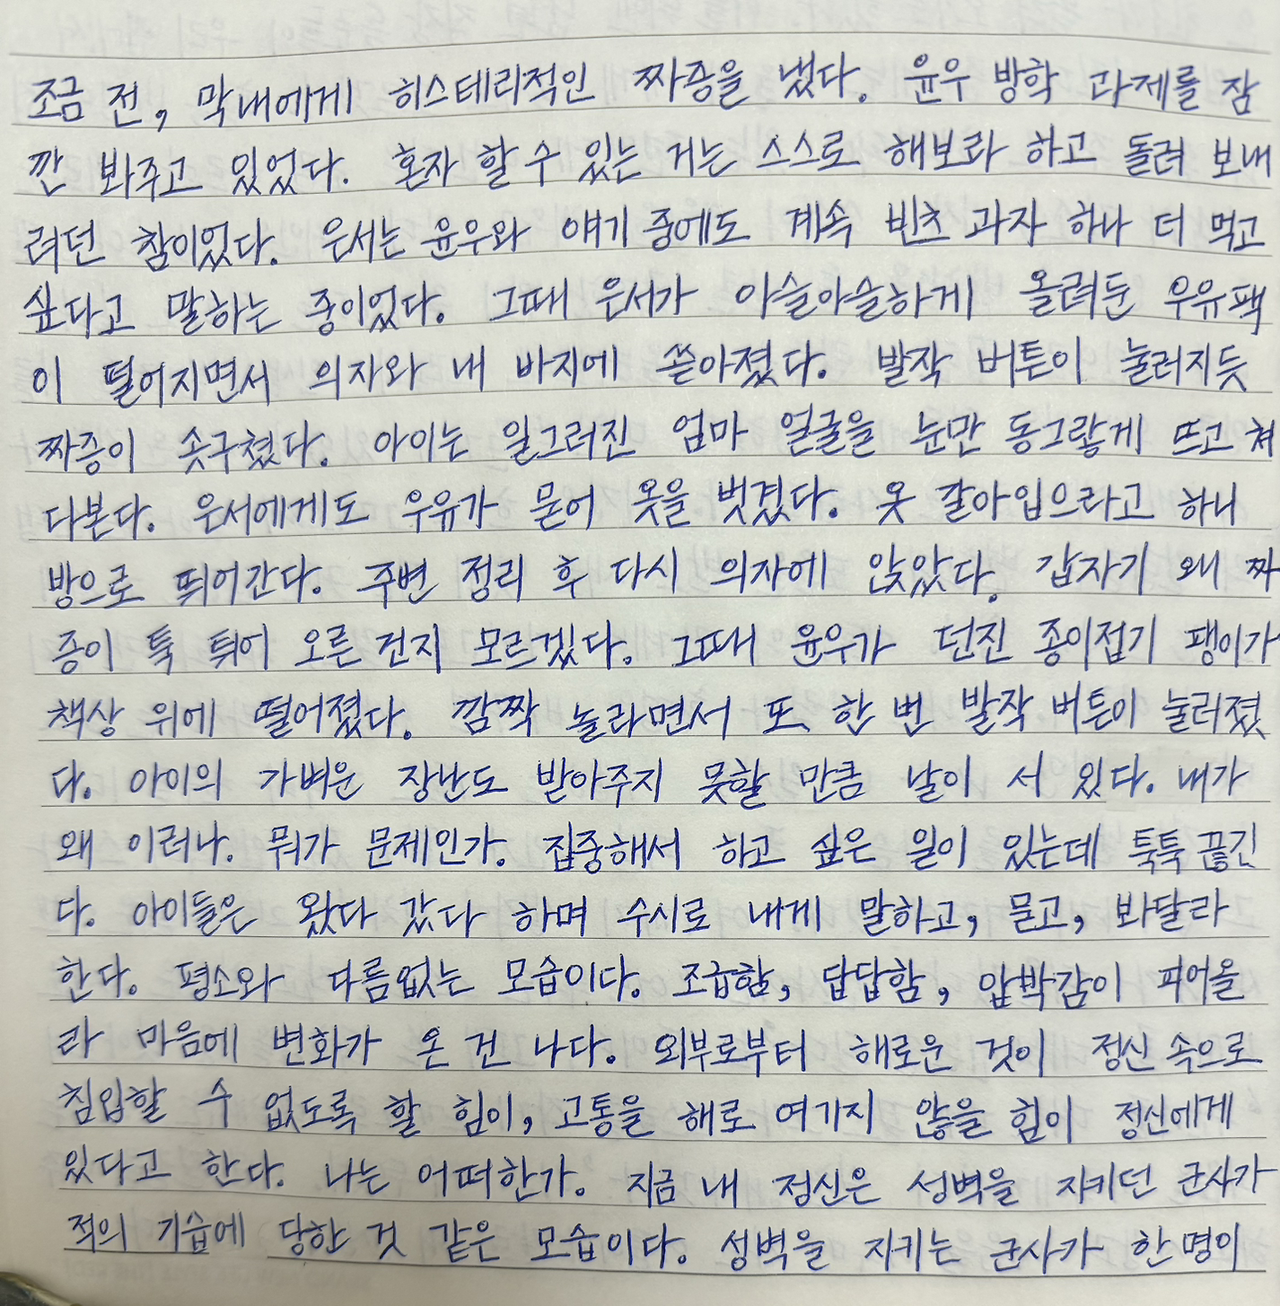 조금 전, 막내에게 히스테리적인 짜증을 냈다. 윤우 방학 과제를 잠
깐 봐주고 있었다. 혼자 할 수 있는 거는 스스로 해보라 하고 돌려 보내
려던 참이었다. 은서는 윤우와 얘기 중에도 계속 빈츠 과자 하나 더 먹고
싶다고 말하는 중이었다. 그때 은서가 아슬아슬하게 올려둔 우유팩
이 떨어지면서 의자와 내 바지에 쏟아졌다. 발작 버튼이 눌러지듯
짜증이 솟구쳤다. 아이는 일그러진 엄마 얼굴을 눈만 동그랗게 뜨고 쳐
다본다. 은서에게도 우유가 묻어 옷을 벗겼다. 옷 갈아입으라고 하니
방으로 뛰어간다. 주변 정리 후 다시 의자에 앉았다. 갑자기 왜 짜
증이 툭 튀어 오른 건지 모르겠다. 그때 윤우가 던진 종이접기 팽이가
책상 위에 떨어졌다. 깜짝 놀라면서 또 한 번 발작 버튼이 눌러졌
다. 아이의 가벼운 장난도 받아주지 못할 만큼 날이 서 있다. 내가
왜 이러나. 뭐가 문제인가. 집중해서 하고 싶은 일이 있는데 툭툭 끊긴
다. 아이들은 왔다 갔다 하며 수시로 내게 말하고, 묻고, 봐달라
한다. 평소와 다름없는 모습이다. 조급함, 답답함, 압박감이 피어올
라 마음에 변화가 온 건 나다. 외부로부터 해로운 것이 정신 속으로
침입할 수 없도록 할 힘이, 고통을 해로 여기지 않을 힘이 정신에게
있다고 한다. 나는 어떠한가. 지금 내 정신은 성벽을 지키던 군사가
적의 기습에 당한 것 같은 모습이다. 성벽을 지키는 군사가 한 명이